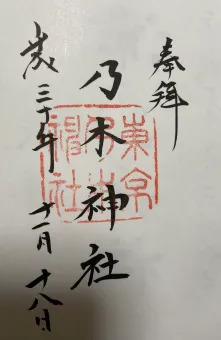 奉拝
乃木神社
三十年十一月十八日
東京
乃木
神社